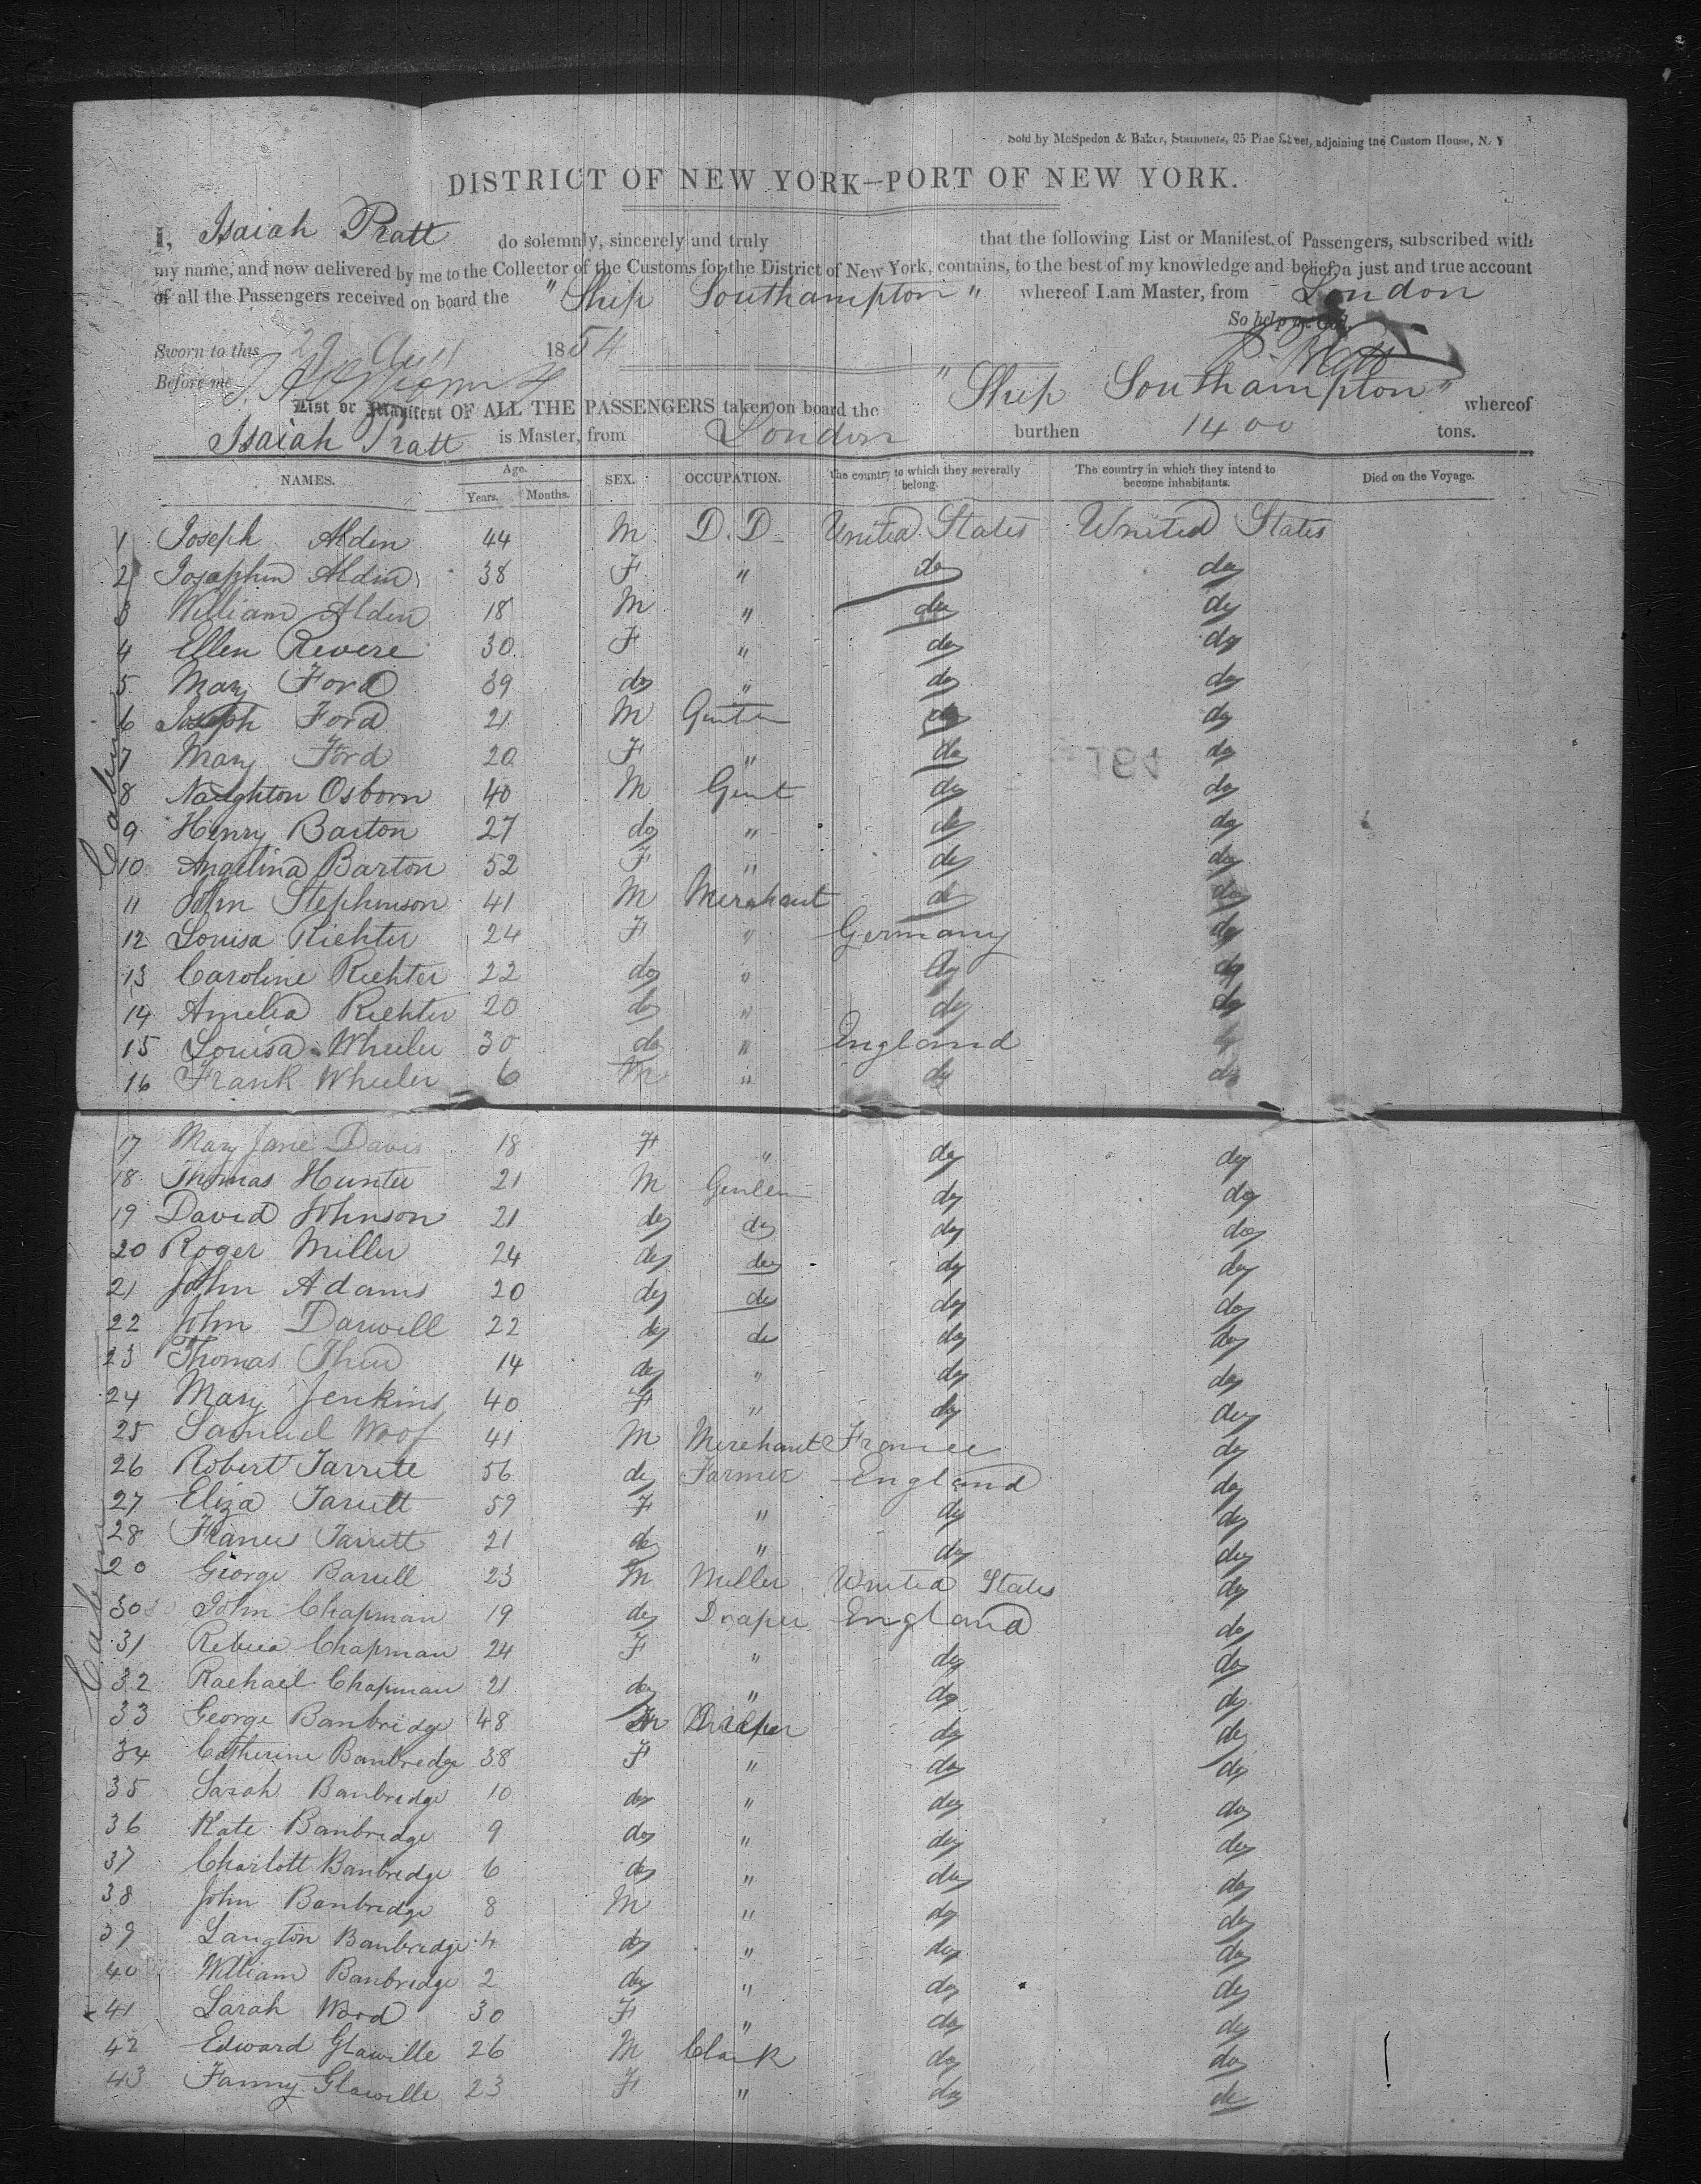 Sold by McSpedon & Baker, Stationers, 25 Pine Street, adjoining the Custom House, N. Y
DISTRICT OF NEW YORK—PORT OF NEW YORK.
I, Isaiah Pratt do solemnly, sincerely and truly that the following List or Manifest of Passengers, subscribed with
my name, and now delivered by me to the Collector of the Customs for the District of New York, contains, to the best of my knowledge and belief, a just and true account
of all the Passengers received on board the "Ship Southampton" whereof I am Master, from London
So help me God.
Sworn to this 29 Aug 1854
I. Pratt
Before me
List or Manifest OF ALL THE PASSENGERS taken on board the "Ship Southampton" whereof
Isaiah Pratt is Master, from London burthen 1400 tons.
NAMES. Age. Years. Months. SEX. OCCUPATION. The country to which they severally belong. The country in which they intend to become inhabitants. Died on the Voyage.
1 Joseph Alden 44 M D.D. United States United States
2 Josaphin Alden 38 F " do do
3 William Alden 18 M " do do
4 Ellen Revere 30 F " do do
5 Mary Ford 39 do " do do
6 Joseph Ford 21 M do do
7 Mary Ford 20 F " do do
8 Naughton Osborn 40 M Gent do do
9 Henry Barton 27 do " do do
10 Angelina Barton 52 F " do do
11 John Stephinson 41 M Merchant do do
12 Louisa Richter 24 F " Germany do
13 Caroline Richter 22 do " do do
14 Amelia Richter 20 do " do do
15 Louisa Wheeler 30 do " England do
16 Frank Wheeler 6 M " do do
17 Mary Jane Davis 18 F " do do
18 Thomas Hunter 21 M do do
19 David Johnson 21 do do do do
20 Roger Miller 24 do do do do
21 John Adams 20 do do do do
22 John Darwill 22 do do do do
23 Thomas 14 do " do do
24 Mary Jenkins 40 F " do do
25 Samuel Woof 41 M Merchant France do
26 Robert Jarrete 56 do Farmer England do
27 Eliza Jarrett 59 F " do do
28 Frances Jarrett 21 do " do do
20 George Barell 23 M Miller United States do
30 John Chapman 19 do Draper England do
31 Rebecca Chapman 24 F " do do
32 Rachael Chapman 21 do " do do
33 George Banbridge 48 M Draper do do
34 Catherine Banbredge 38 F " do do
35 Sarah Banbredge 10 do " do do
36 Kate Banbredge 9 do " do do
37 Charlott Banbredge 6 do " do do
38 John Banbredge 8 M " do do
39 Langton Banbredge 4 do " do do
40 William Banbredge 2 do " do do
41 Sarah Word 30 F " do do
42 Edward Glawille 26 M Clark do do
43 Fanny Glawille 23 F " do do
Cabin
Cabin